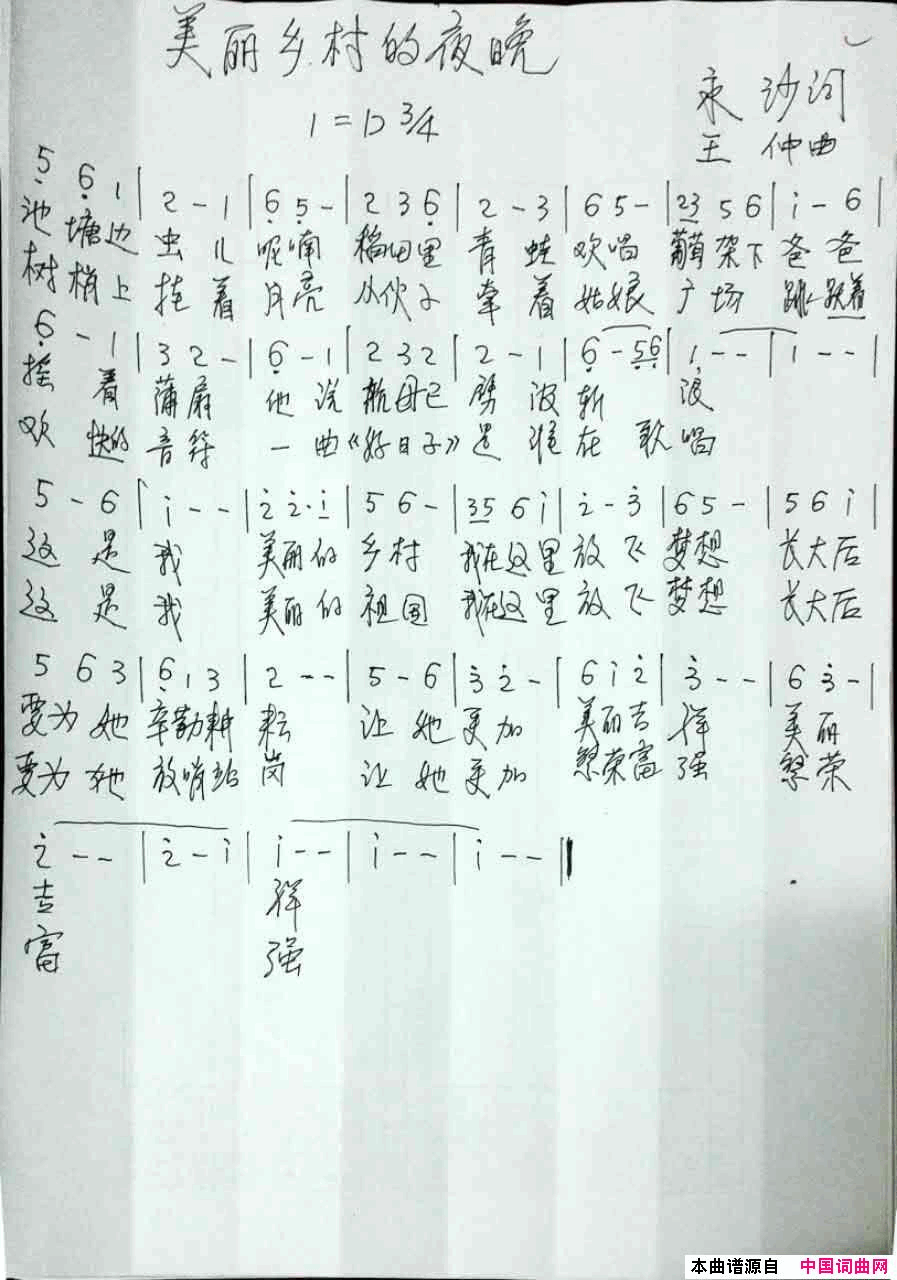 美丽乡村的夜晚
1=D 3/4
永沙词
王仲曲
5̣ 6̣ 1 | 2 - 1 | 6̣ 5̣ - | 2 3 6̣ | 2 - 3 | 6 5 - | 23 5 6 | i - 6 |
池塘边 虫儿 呢喃 稻田里 青蛙 欢唱 葡萄架下 爸爸
树梢上 挂着 月亮 小伙子 牵着 姑娘 广场 跳跃着
6̣ - 1 | 3 2 - | 6̣ - 1 | 2 3 2 | 2 - 1 | 6̣ - 5̣6̣ | 1 - - | 1 - - |
摇着 蒲扇 他说 航母已 劈波 斩 浪
欢快的 音符 一曲《好日子》是谁在歌唱
5 - 6 | i - - | 2̇ 2̇· i | 5 6 - | 35 6 i | 2̇ - 3̇ | 6 5 - | 5 6 i |
这是 我 美丽的 乡村 我在这里 放飞 梦想 长大后
这是 我 美丽的 祖国 我在这里 放飞 梦想 长大后
5 6 3 | 6̣ 1 3 | 2 - - | 5 - 6 | 3̇ 2̇ - | 6 i 2̇ | 3̇ - - | 6 3̇ - |
要为她 辛勤耕 耘 让她 更加 美丽吉 祥 美丽
要为她 放哨站 岗 让她 更加 繁荣富 强 繁荣
2̇ - - | 2̇ - i | i - - | i - - | i - - ‖
吉 祥
富 强
本曲谱源自 中国词曲网